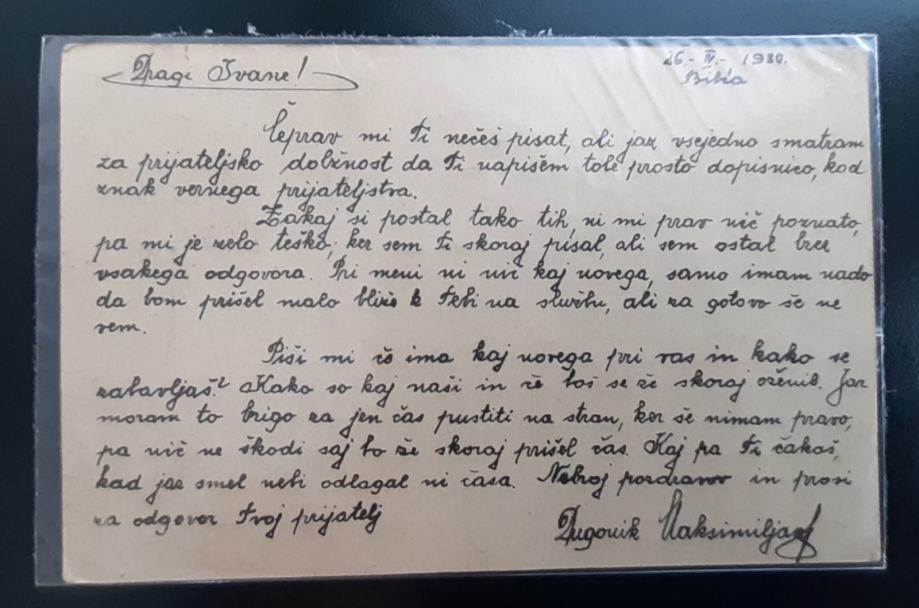 Dragi Ivane!
26.- IV.- 1930.
Čeprav mi Ti nečeš pisat, ali jaz vsejedno smatram
za prijateljsko dolžnost da Ti napišem tole prosto dopisnico, kod
znak vernega prijateljstva.
Zakaj si postal tako tih, ni mi prav nič poznato,
pa mi je zelo teško, ker sem Ti skoraj pisal, ali sem ostal brez
vsakega odgovora. Pri meni ni nič kaj novega, samo imam nado
da bom prišel malo bliže k Tebi na službu, ali za gotovo še ne
vem.
Piši mi če ima kaj novega pri vas in kako se
zabavljaš? Kako so kaj naši in če boš se že skoraj oženil. Jaz
moram to brigo za jen čas pustiti na stran, ker še nimam pravo,
pa nič ne škodi saj bo že skoraj prišel čas. Kaj pa Ti čakaš,
kad jaz smel nebi odlagal ni časa. Nebroj pozdravov in prosi
za odgovor Tvoj prijatelj
Dugonik Maksimiljan